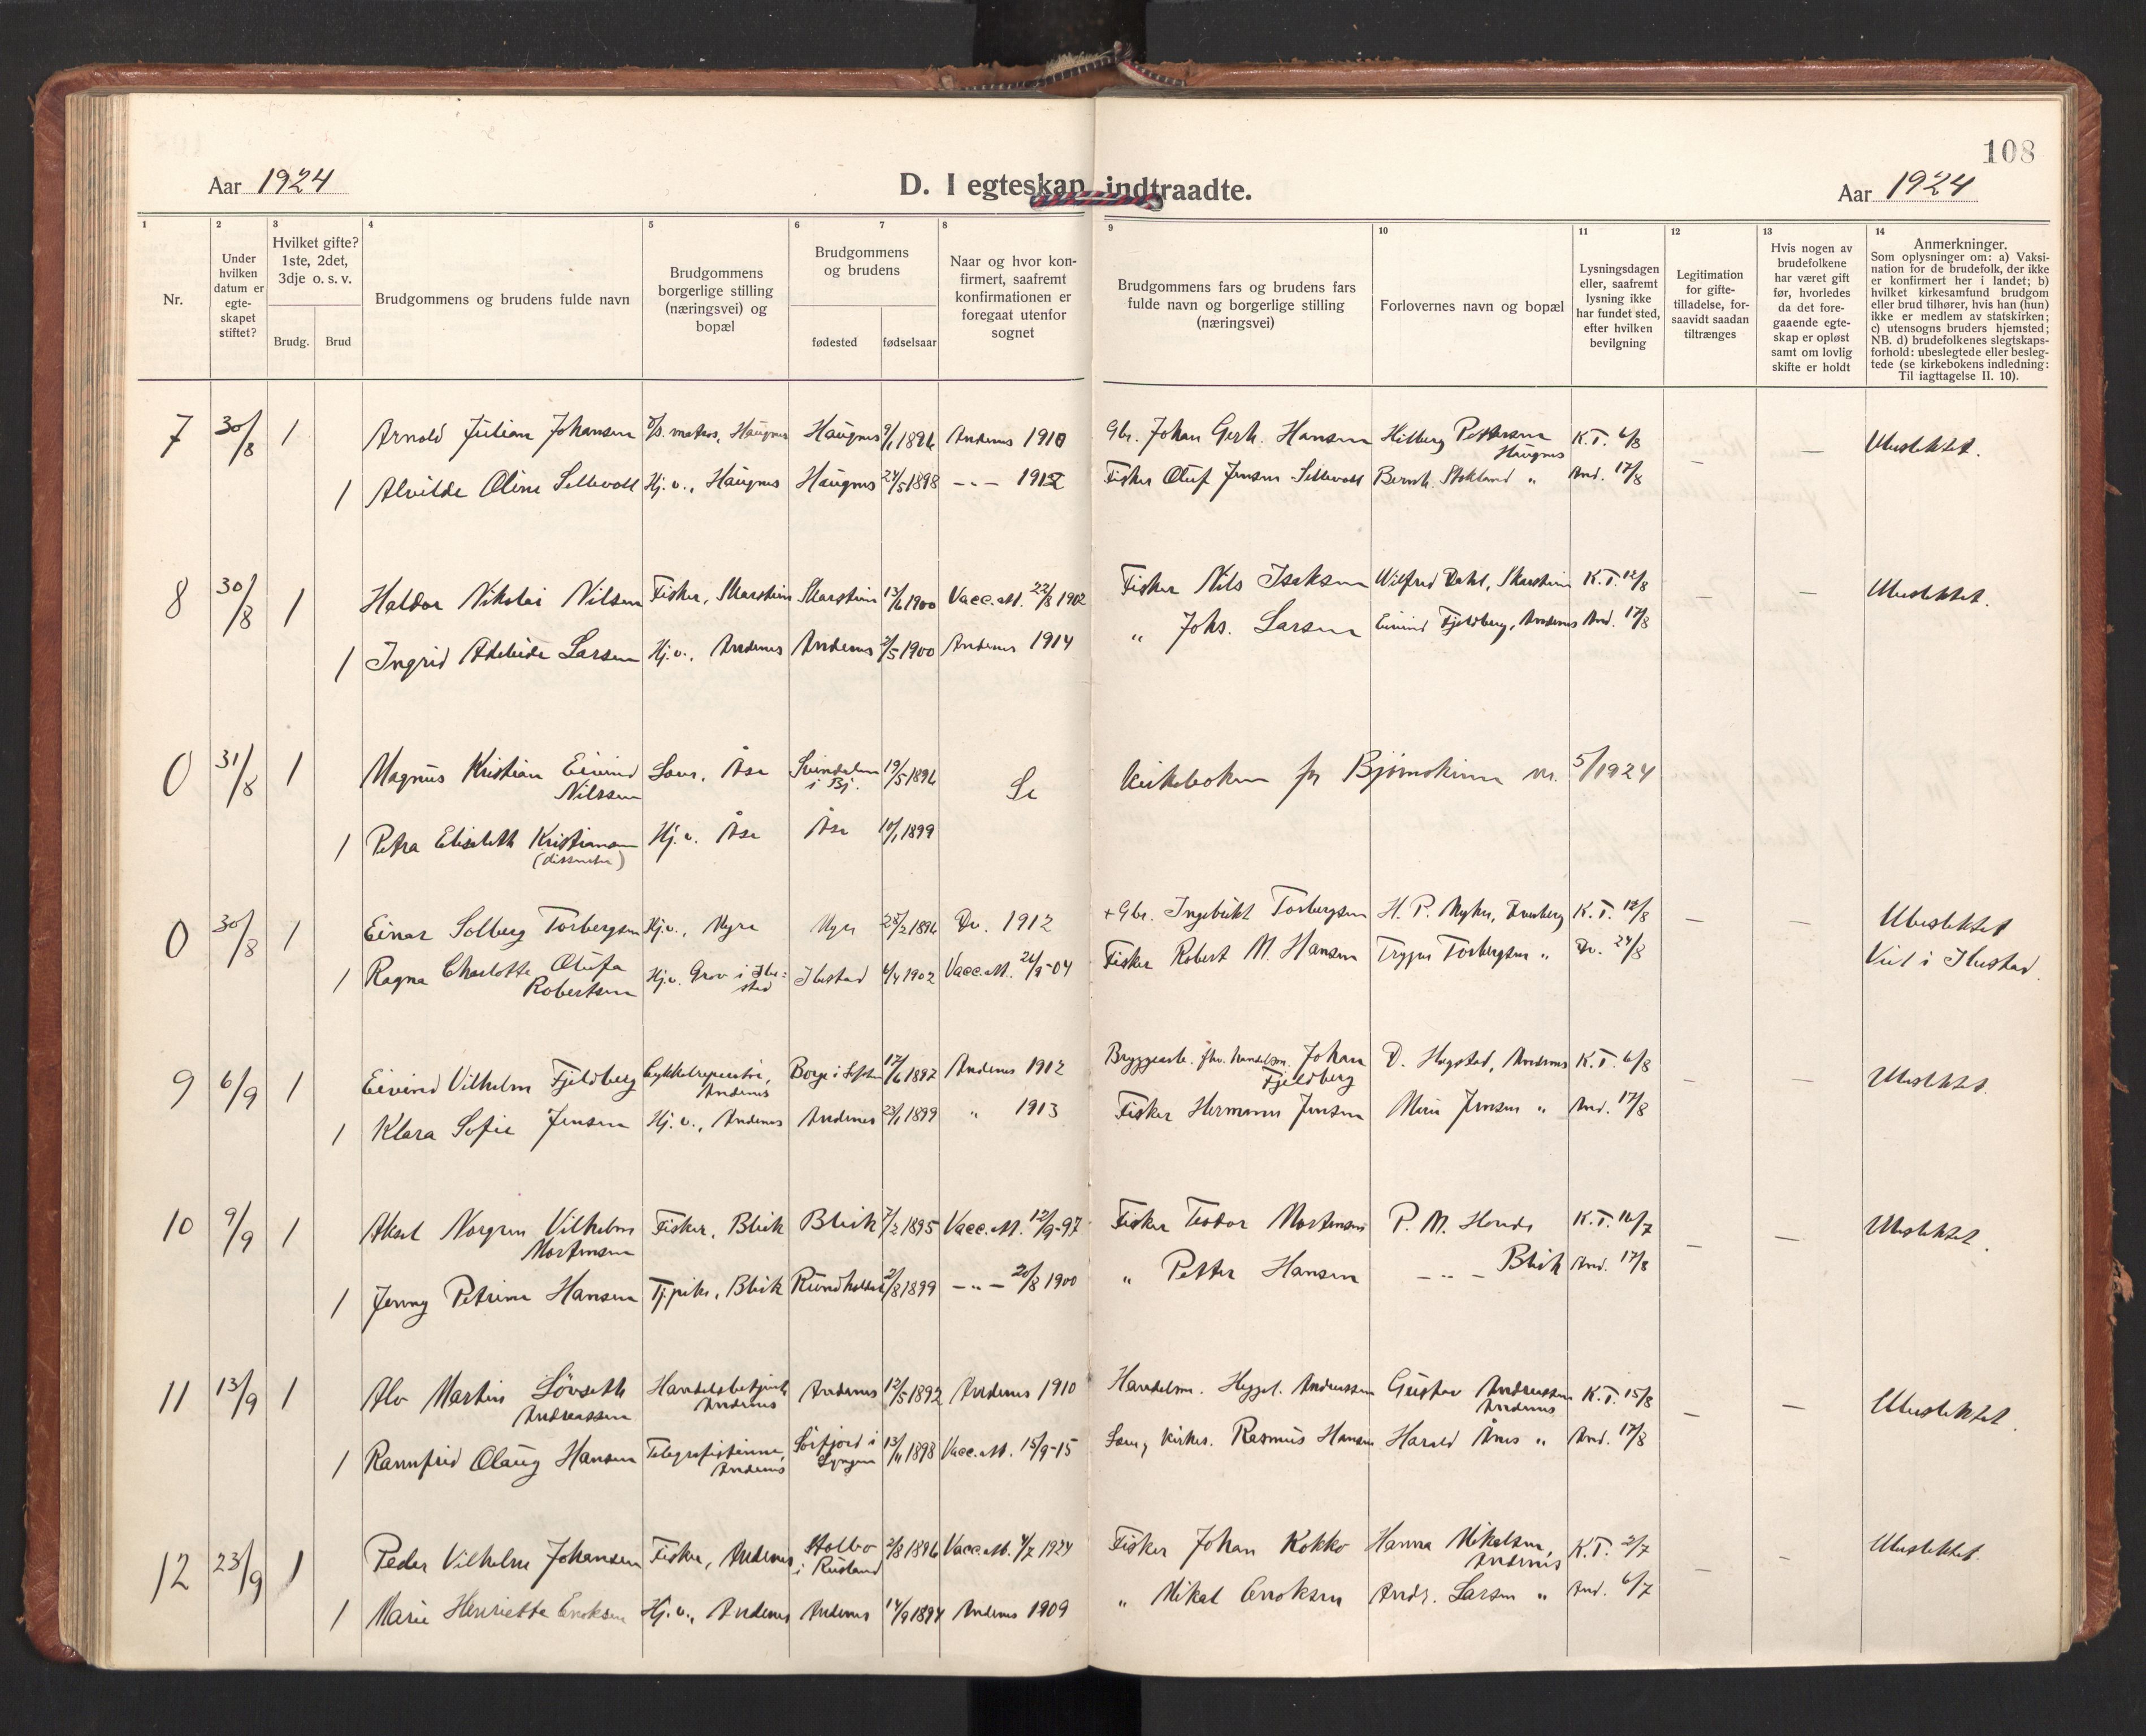 108
Aar 1924
D. I egteskap indtraadte.
Aar 1924
1 2 3 4 5 6 7 8 9 10 11 12 13 14
Nr.
Under hvilken datum er egte-skapet stiftet?
Hvilket gifte? 1ste, 2det, 3dje o. s. v.
Brudg. Brud
Brudgommens og brudens fulde navn
Brudgommens borgerlige stilling (næringsvei) og bopæl
Brudgommens og brudens
fødested fødselsaar
Naar og hvor kon-firmert, saafremt konfirmationen er foregaat utenfor sognet
Brudgommens fars og brudens fars fulde navn og borgerlige stilling (næringsvei)
Forlovernes navn og bopæl
Lysningsdagen eller, saafremt lysning ikke har fundet sted, efter hvilken bevilgning
Legitimation for gifte-tilladelse, for-saavidt saadan tiltrænges
Hvis nogen av brudefolkene har været gift før, hvorledes da det fore-gaaende egte-skap er opløst samt om lovlig skifte er holdt
Anmerkninger.
Som oplysninger om: a) Vaksi-nation for de brudefolk, der ikke er konfirmert her i landet; b) hvilket kirkesamfund brudgom eller brud tilhører, hvis han (hun) ikke er medlem av statskirken; c) utensogns bruders hjemsted; NB. d) brudefolkenes slegtskaps-forhold: ubeslegtede eller besleg-tede (se kirkebokens indledning: Til iagttagelse II. 10).
7 30/8 1 Arnold Julian Johansen matros, Haugnes Haugnes 9/1 1896 Andenes 1910 Gbr. Johan Gerh. Hansen Hilberg Pettersen Haugnes K.T. 6/8 — — Ubeslektet.
1 Alvilde Oline Sellevoll Hj.v., Haugnes Haugnes 24/5 1898 -"- 1912 Fisker Oluf Jensen Sellevoll Bernh. Stokland " And. 17/8
8 30/8 1 Haldor Nikolai Nilsen Fisker, Skarstein Skarstein 13/6 1900 Vacc.att. 22/8 1902 Fisker Nils Isaksen Wilfred Dahl, Skarstein K.T. 12/8 — — Ubeslektet.
1 Ingrid Adeleide Larsen Hj.v., Andenes Andenes 2/5 1900 Andenes 1914 " Johs. Larsen Eivind Fjeldberg, Andenes And. 17/8
0 31/8 1 Magnus Kristian Eivind Nilssen Åse Svindalen i Bj. 19/5 1896 Se kirkeboken for Bjørnskinn nr. 5/1924
1 Petra Elisabeth Kristiansen (dissenter) Hj.v. Åse Åse 10/1 1899
0 30/8 1 Einar Solberg Torbergsen Hj.v., Myre Myre 28/2 1896 Dv. 1912 + Gbr. Ingebrikt Torbergsen H. P. Myhre, Dverberg K.T. 12/8 — — Ubeslektet
1 Ragna Charlotte Olufa Robertsen Hj.v. Grov i Ibestad Ibestad 6/4 1902 Vacc.att. 26/9-04 Fisker Robert M. Hansen Trygve Torbergsen " Dv. 24/8 Viet i Ibestad.
9 6/9 1 Eivind Vilhelm Fjeldberg Cykkelreparatør, Andenes Borge i Lofoten 17/6 1897 Andenes 1912 Bryggearb. fhv. handelsm. Johan Fjeldberg D. Hagstad, Andenes K.T. 6/8 — — Ubeslektet.
1 Klara Sofie Jensen Hj.v., Andenes Andenes 23/1 1899 " 1913 Fisker Hermann Jensen Marie Jensen " And. 17/8
10 9/9 1 Aksel Norgren Vilhelm Mortensen Fisker, Bleik Bleik 7/2 1895 Vacc.att. 12/9-97 Fisker Teodor Mortensen P. M. Honde K.T. 16/7 — — Ubeslektet.
1 Jenny Petrine Hansen Tj.pike, Bleik 2/8 1899 -"- 20/8 1900 " Petter Hansen -"- Bleik And. 17/8
11 13/9 1 Alv Martin Lövseth Andreassen Handelsbetjent Andenes Andenes 12/5 1892 Andenes 1910 Handelsm. Andreassen Gustav Andreassen Andenes K.T. 15/8 — — Ubeslektet
1 Rannfrid Olaug Hansen Telegrafistinne, Andenes Sörfjord i Lyngen 13/11 1898 Vacc.att. 15/9-15 Rasmus Hansen Harald Ånes " And. 17/8
12 23/9 1 Peder Vilhelm Johansen Fisker, Andenes Stolbo i Rusland 2/8 1896 Vacc.att. 4/7 1924 Fisker Johan Kokko Hanna Mikalsen, Andenes K.T. 2/7 — — Ubeslektet.
1 Marie Henriette Enoksen Hj.v., Andenes Andenes 14/9 1894 Andenes 1909 " Mikal Enoksen Andr. Larsen " And. 6/7